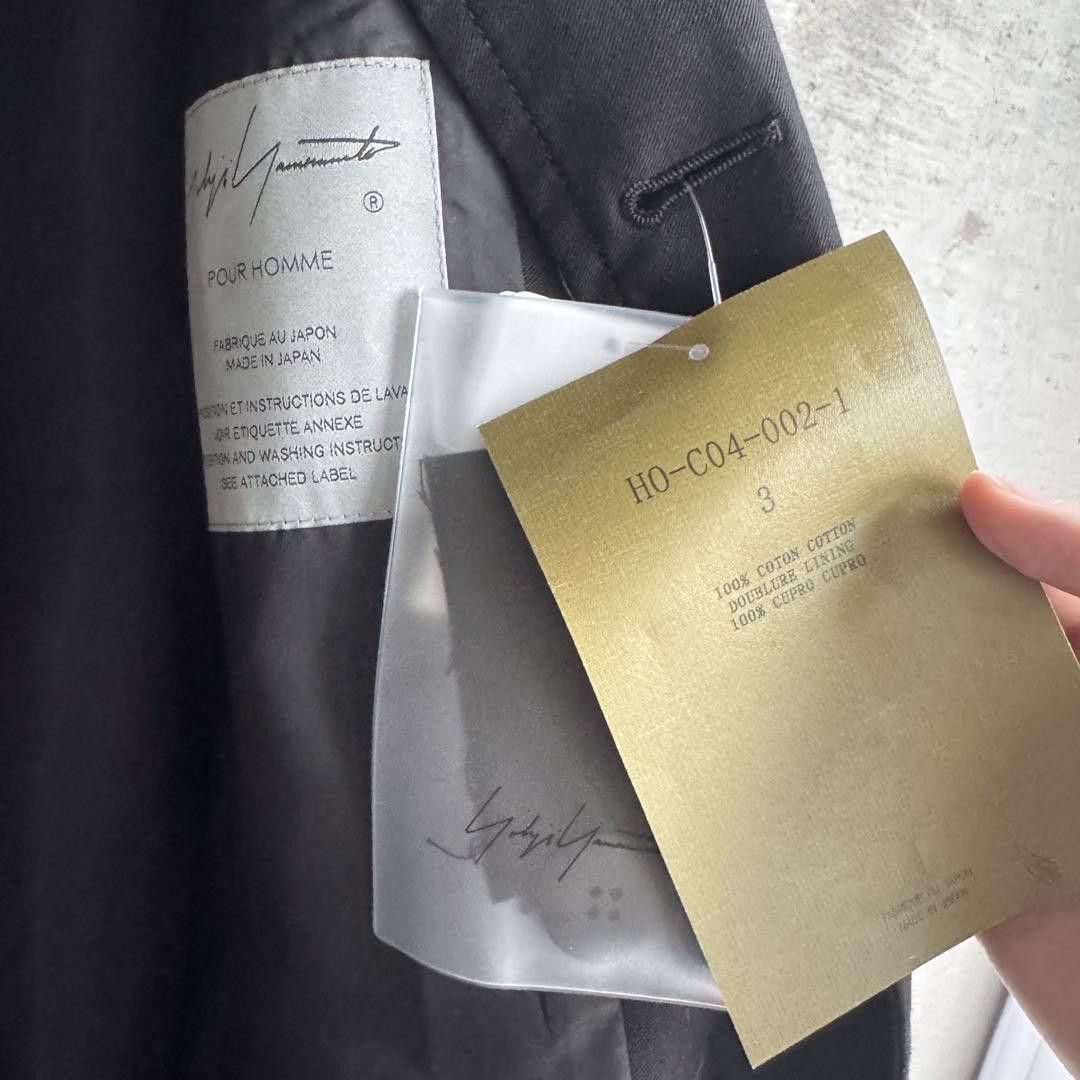 Yamamoto
®
POUR HOMME
FABRIQUE AU JAPON
MADE IN JAPAN
ET INSTRUCTIONS DE LAVA
VOIR ETIQUETTE ANNEXE
AND WASHING INSTRUCT
SEE ATTACHED LABEL
HO-C04-002-1
3
100% COTON COTTON
DOUBLURE LINING
100% CUPRO CUPRO
Yohji Yamamoto
FABRIQUE AU JAPON
MADE IN JAPAN